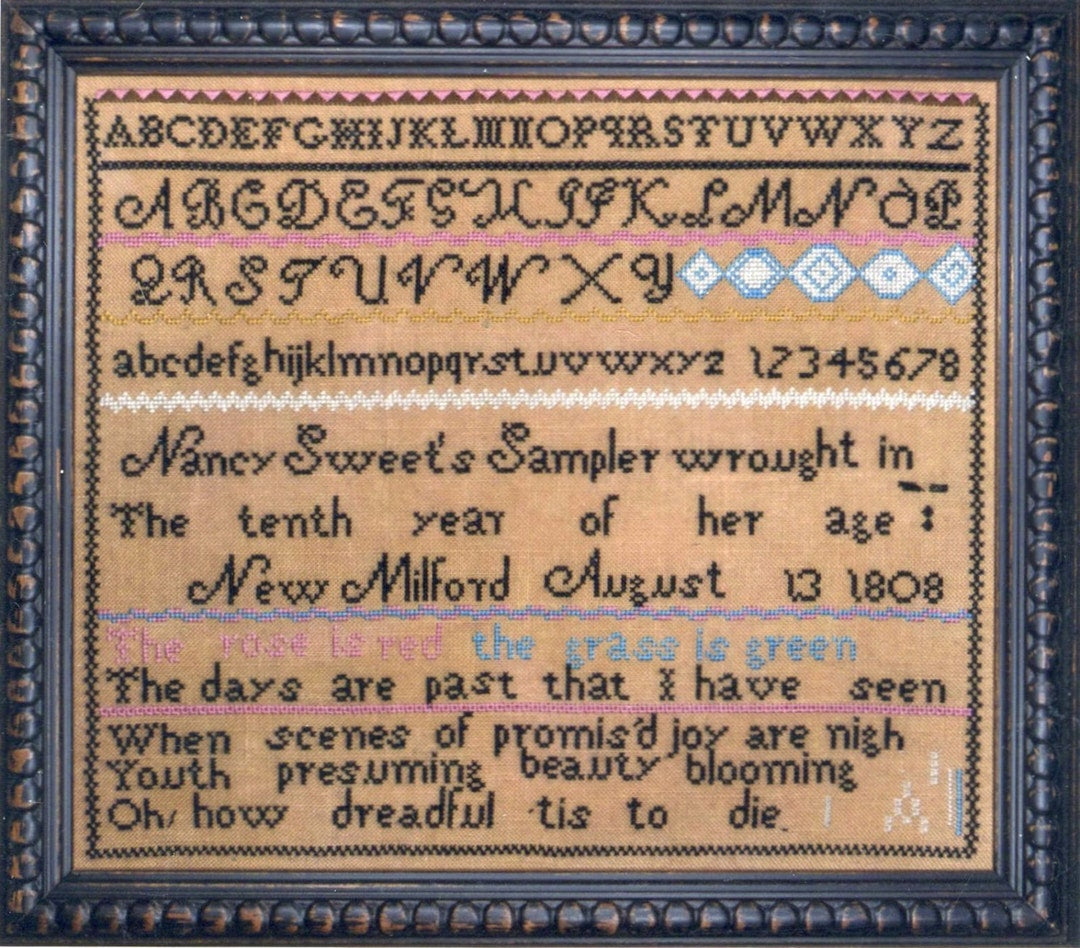 ABCDEFGHIJKLMNOPQRSTUVWXYZ
ABCDEFGHIJKLMNOP
QRSTUVWXY
abcdefghijklmnopqrstuvwxyz 12345678
Nancy Sweet's Sampler wrought in
The tenth year of her age :
New Milford August 13 1808
The rose is red the grass is green
The days are past that I have seen
When scenes of promis'd joy are nigh
Youth presuming beauty blooming
Oh, how dreadful 'tis to die.